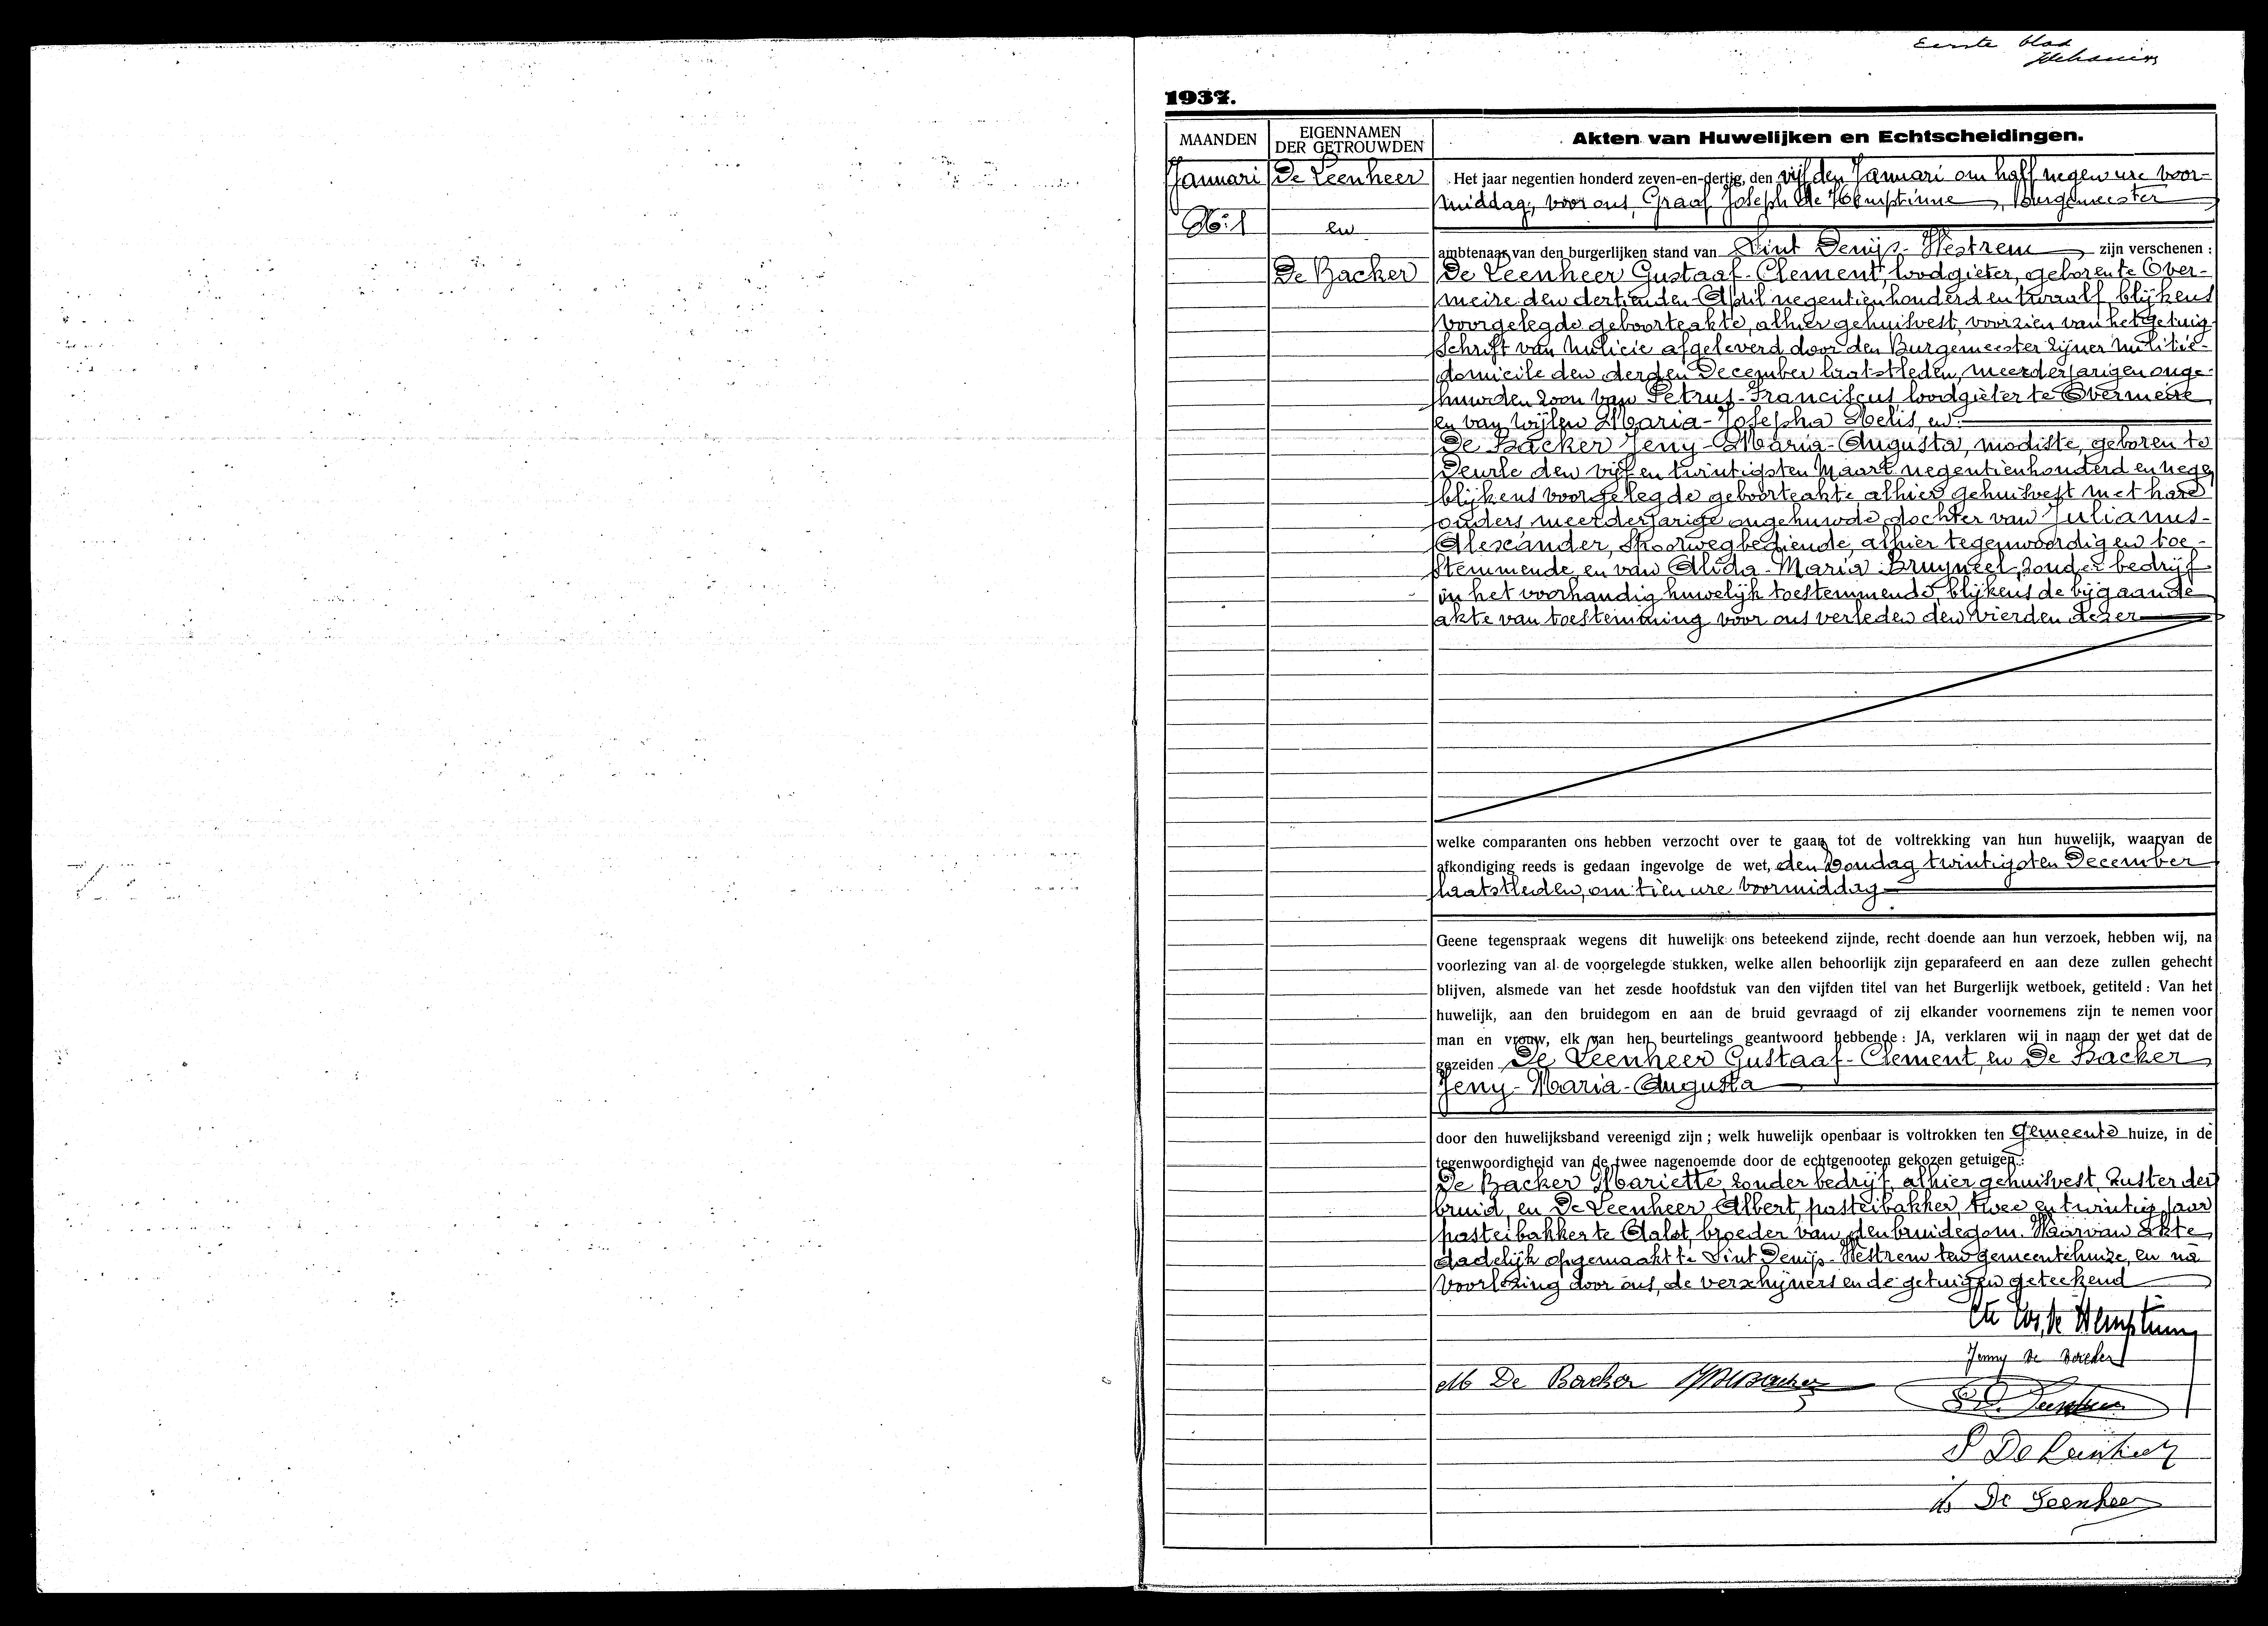 Eerste blad
1937.
MAANDEN
EIGENNAMEN
DER GETROUWDEN
Akten van Huwelijken en Echtscheidingen.
Januari
No: 1
De Leenheer
en
De Backer
Het jaar negentien honderd zeven-en-dertig, den vijfden Januari om half negen ure voor-
middag, voor ons, Graaf Joseph de Hemptinne, Burgemeester
ambtenaar van den burgerlijken stand van Sint Denijs-Westrem zijn verschenen :
De Leenheer Gustaaf-Clement, loodgieter, geboren te Over-
meire den dertienden April negentienhonderd en twaalf, blijkens
voorgelegde geboorteakte, alhier gehuisvest, voorzien van het getuig-
schrift van milicie afgeleverd door den Burgemeester zijner militie-
domicile den derden December laatstleden, meerderjarigen onge-
huwden zoon van Petrus-Franciscus loodgieter te Overmeire
en van wijlen Maria-Josepha Melis, en
De Backer Jeny-Maria-Augusta, modiste, geboren te
Deurle den vijf en twintigsten Maart negentienhonderd en nege
blijkens voorgelegde geboorteakte alhier gehuisvest met hare
ouders meerderjarige ongehuwde dochter van Julianus-
Alexander, spoorwegbediende, alhier tegenwoordig en toe-
stemmende, en van Alida-Maria Bruyneel, zonder bedrijf
in het voorhandig huwelijk toestemmende, blijkens de bijgaande
akte van toestemming voor ons verleden den vierden dezer
welke comparanten ons hebben verzocht over te gaan tot de voltrekking van hun huwelijk, waarvan de
afkondiging reeds is gedaan ingevolge de wet, den Zondag twintigsten December
laatstleden, om tien ure voormiddag
Geene tegenspraak wegens dit huwelijk ons beteekend zijnde, recht doende aan hun verzoek, hebben wij, na
voorlezing van al de voorgelegde stukken, welke allen behoorlijk zijn geparafeerd en aan deze zullen gehecht
blijven, alsmede van het zesde hoofdstuk van den vijfden titel van het Burgerlijk wetboek, getiteld : Van het
huwelijk, aan den bruidegom en aan de bruid gevraagd of zij elkander voornemens zijn te nemen voor
man en vrouw, elk van hen beurtelings geantwoord hebbende : JA, verklaren wij in naam der wet dat de
gezeiden De Leenheer Gustaaf-Clement, en De Backer
Jeny-Maria-Augusta
door den huwelijksband vereenigd zijn ; welk huwelijk openbaar is voltrokken ten Gemeente huize, in de
tegenwoordigheid van de twee nagenoemde door de echtgenooten gekozen getuigen :
De Backer Mariette, zonder bedrijf, alhier gehuisvest, zuster der
bruid, en De Leenheer Albert, pasteibakker, twee en twintig jaar
pasteibakker te Aalst, broeder van den bruidegom. Waarvan akte
dadelijk opgemaakt te Sint Denijs-Westrem ten gemeentehuize, en na
voorlezing door ons, de verschijners en de getuigen geteekend
Cte Jos. de Hemptinne
Jenny De Backer
M De Backer
P De Leenheer
De Leenheer